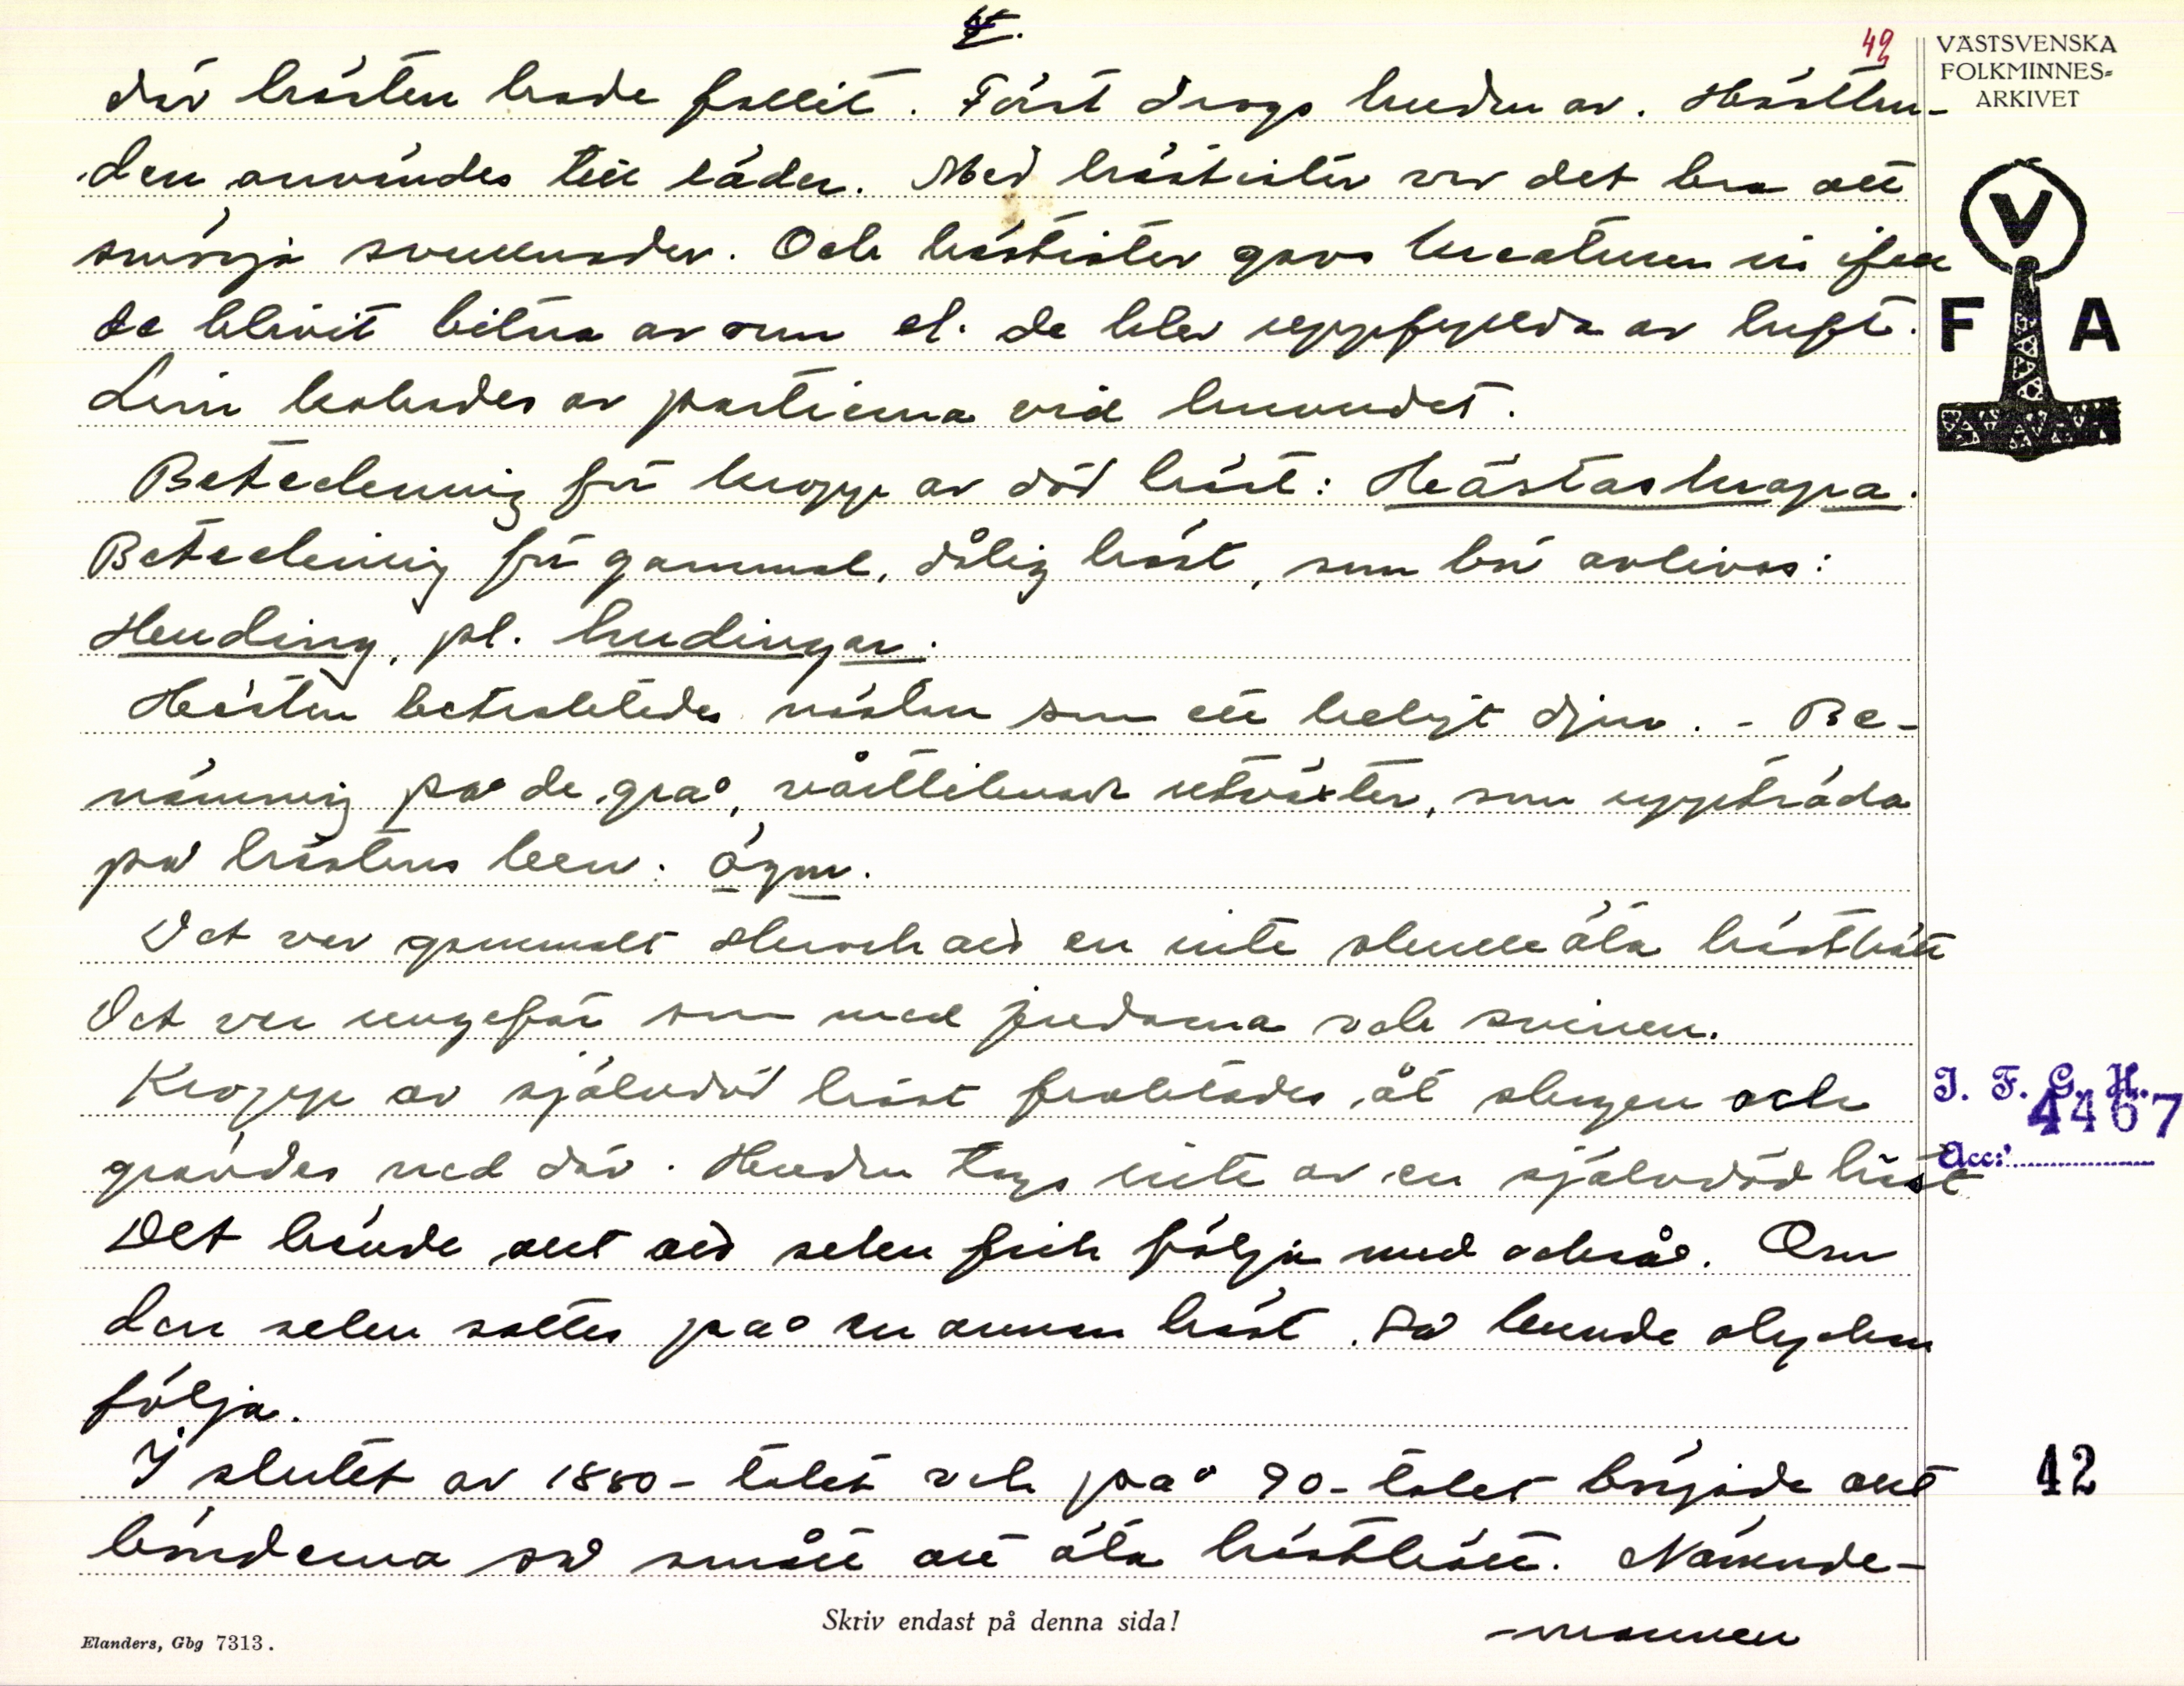 4.
49
VÄSTSVENSKA
FOLKMINNES=
ARKIVET
där hästen hade fallit. Först drogs huden av. Hästhu-
den användes till läder. Med hästister var det bra att
smörja svullnader. Och hästister gavs kreaturen in ifall
de blivit bitna av orm el. de blev uppfyllda av luft.
Lim kokades av partierna vid huvudet.
Beteckning för kropp av död häst: Hästaskrapa.
Beteckning för gammal, dålig häst, som bör avlivas:
Huding, pl. hudingar.
Hästen betraktades nästan som ett heligt djur. - Be-
nämning på de grå, vårtliknande utväxter, som uppträda
på hästens ben: ögon.
Det var gammalt skrock att en inte skulle äta hästkött
Det var ungefär som med judarna och svinen.
Kropp av självdöd häst fraktades åt skogen och
grävdes ned där. Huden togs inte av en självdöd häst
Det hände att att selen fick följa med också. Om
den selen sattes på en annan häst, så kunde olyckan
följa.
I slutet av 1880-talet och på 90-talet började att
bönderna så smått att äta hästkött. Nämnde-
-mannen
V
F A
I. F. G. H.
4467
Acc:
42
Skriv endast på denna sida!
Elanders, Gbg 7313.